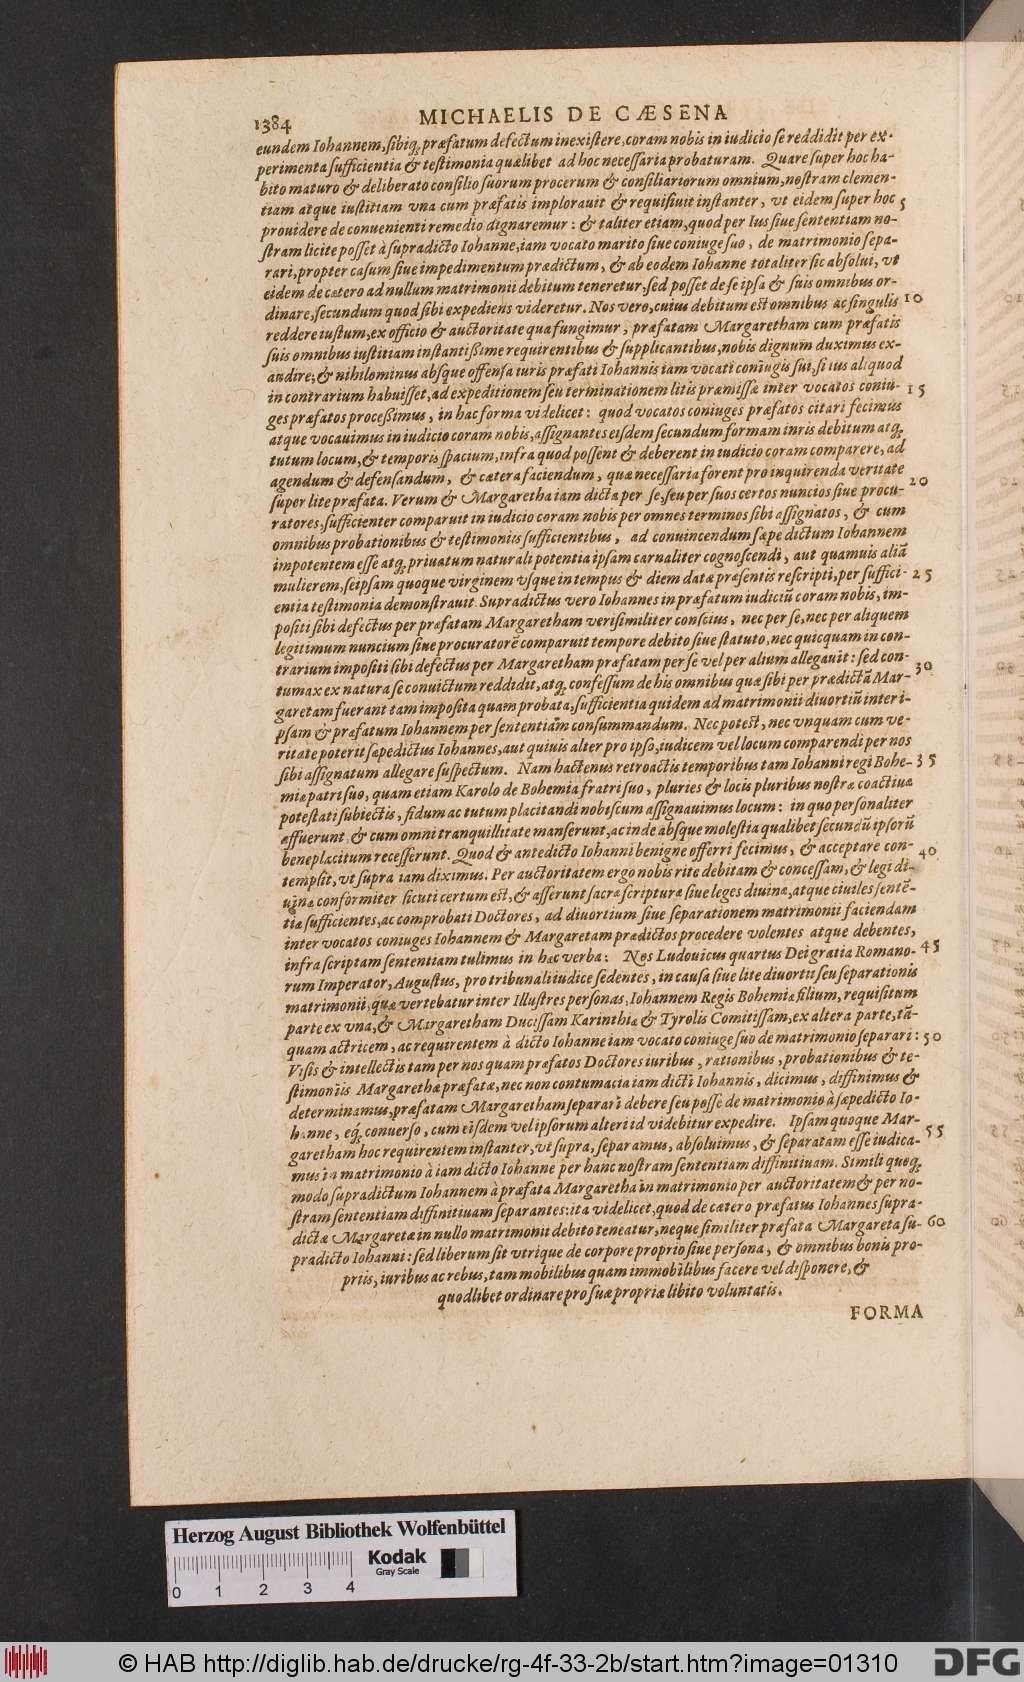 1384
MICHAELIS DE CÆSENA
eundem Iohannem, sibiq; præfatum defectum inexistere, coram nobis in iudicio se reddidit per ex-
perimenta sufficientia & testimonia quælibet ad hoc necessaria probaturam. Quare super hoc ha-
bito maturo & deliberato consilio suorum procerum & consiliariorum omnium, nostram clemen-
tiam atque iustitiam vna cum præfatis implorauit & requisiuit instanter, vt eidem super hoc 5
prouidere de conuenienti remedio dignaremur: & taliter etiam, quod per Ius siue sententiam no-
stram licite posset à supradicto Iohanne, iam vocato marito siue coniuge suo, de matrimonio sepa-
rari, propter casum siue impedimentum prædictum, & ab eodem Iohanne totaliter sic absolui, vt
eidem de cætero ad nullum matrimonii debitum teneretur, sed posset de se ipsa & suis omnibus or-
dinare, secundum quod sibi expediens videretur. Nos vero, cuius debitum est omnibus ac singulis 10
reddere iustum, ex officio & auctoritate qua fungimur, præfatam Margaretham cum præfatis
suis omnibus iustitiam instantißime requirentibus & supplicantibus, nobis dignum duximus ex-
audire, & nihilominus absque offensa iuris præfati Iohannis iam vocati coniugis sui, si ius aliquod
in contrarium habuisset, ad expeditionem seu terminationem litis præmissæ inter vocatos coniu- 15
ges præfatos proceßimus, in hac forma videlicet: quod vocatos coniuges præfatos citari fecimus
atque vocauimus in iudicio coram nobis, assignantes eisdem secundum formam iuris debitum atq;
tutum locum, & temporis spacium, infra quod possent & deberent in iudicio coram comparere, ad
agendum & defensandum, & cætera faciendum, quæ necessaria forent pro inquirenda veritate
super lite præfata. Verum & Margaretha iam dicta per se, seu per suos certos nuncios siue procu- 20
ratores, sufficienter comparuit in iudicio coram nobis per omnes terminos sibi assignatos, & cum
omnibus probationibus & testimoniis sufficientibus, ad conuincendum sæpe dictum Iohannem
impotentem esse atq; priuatum naturali potentia ipsam carnaliter cognoscendi, aut quamuis aliã
mulierem, seipsam quoque virginem vsque in tempus & diem datæ præsentis rescripti, per suffici- 25
entia testimonia demonstrauit. Supradictus vero Iohannes in præfatum iudiciũ coram nobis, im-
positi sibi defectus per præfatam Margaretham verisimiliter conscius, nec per se, nec per aliquem
legitimum nuncium siue procuratorẽ comparuit tempore debito siue statuto, nec quicquam in con-
trarium impositi sibi defectus per Margaretham præfatam per se vel per alium allegauit: sed con-
tumax ex natura se conuictum reddidit, atq; confessum de his omnibus quæ sibi per prædictã Mar- 30
garetam fuerant tam imposita quam probata, sufficientia quidem ad matrimonii diuortiũ inter i-
psam & præfatum Iohannem per sententiam consummandum. Nec potest, nec vnquam cum ve-
ritate poterit sæpedictus Iohannes, aut quiuis alter pro ipso, iudicem vel locum comparendi per nos
sibi assignatum allegare suspectum. Nam hactenus retroactis temporibus tam Iohanni regi Bohe- 35
miæ patri suo, quam etiam Karolo de Bohemia fratri suo, pluries & locis pluribus nostræ coactiuæ
potestati subiectis, fidum ac tutum placitandi nobiscum assignauimus locum: in quo personaliter
affuerunt & cum omni tranquillitate manserunt, ac inde absque molestia qualibet secundũ ipsorũ
beneplacitum recesserunt. Quod & antedicto Iohanni benigne offerri fecimus, & acceptare con- 40
templsit, vt supra iam diximus. Per auctoritatem ergo nobis rite debitam & concessam, & legi di-
uinæ conformiter sicuti certum est, & asserunt sacra scripturæ siue leges diuinæ, atque ciuiles sentẽ-
tiæ sufficientes, ac comprobati Doctores, ad diuortium siue separationem matrimonii faciendam
inter vocatos coniuges Iohannem & Margaretam prædictos procedere volentes atque debentes,
infra scriptam sententiam tulimus in hæc verba: Nos Ludouicus quartus Dei gratia Romano- 45
rum Imperator, Augustus, pro tribunali iudice sedentes, in causa siue lite diuortii seu separationis
matrimonii, quæ vertebatur inter Illustres personas, Iohannem Regis Bohemiæ filium, requisitum
parte ex vna, & Margaretham Ducissam Karinthiæ & Tyrolis Comitissam, ex altera parte, tã-
quam actricem, ac requirentem à dicto Iohanne iam vocato coniuge suo de matrimonio separari: 50
Visis & intellectis tam per nos quam præfatos Doctores iuribus, rationibus, probationibus & te-
stimoniis Margarethæ præfatæ, nec non contumacia iam dicti Iohannis, dicimus, diffinimus &
determinamus, præfatam Margaretham separari debere seu posse de matrimonio à sæpedicto Io-
hanne, eq; conuerso, cum eisdem vel ipsorum alteri id videbitur expedire. Ipsam quoque Mar- 55
garetham hoc requirentem instanter, vt supra, separamus, absoluimus, & separatam esse iudica-
mus in matrimonio à iam dicto Iohanne per hanc nostram sententiam diffinitiuam. Simili quoq;
modo supradictum Iohannem à præfata Margaretha in matrimonio per auctoritatem & per no-
stram sententiam diffinitiuam separantes: ita videlicet, quod de cætero præfatus Iohannes supra-
dictæ Margaretæ in nullo matrimonii debito teneatur, neque similiter præfata Margareta su- 60
pradicto Iohanni: sed liberum sit vtrique de corpore proprio siue persona, & omnibus bonis pro-
priis, iuribus ac rebus, tam mobilibus quam immobilibus facere vel disponere, &
quodlibet ordinare pro suæ propriæ libito voluntatis.
FORMA
Herzog August Bibliothek Wolfenbüttel
Kodak
Gray Scale
0 1 2 3 4
© HAB http://diglib.hab.de/drucke/rg-4f-33-2b/start.htm?image=01310
DFG